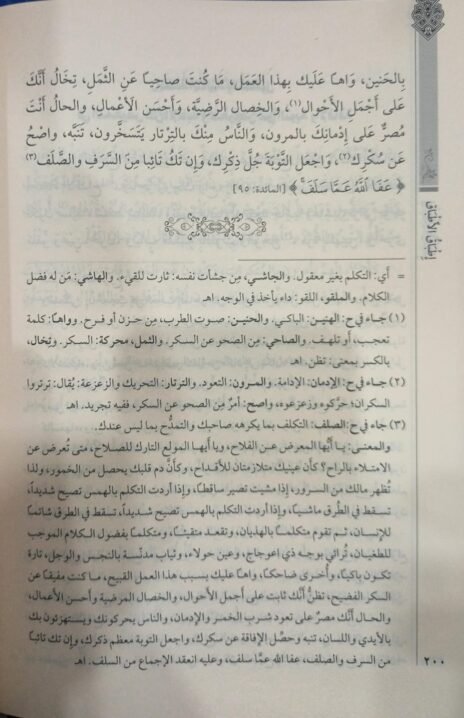 بِالحَنين، وَاهـا عَلَيك بِهذا العَمَل، مَا كُنتَ صاحِيـا عَنِ الثَّمَل، تِخَالُ أَنَّكَ
عَلى أَجْمَلِ الأَحْوال(١)، وَالخِصال الرَّضِيَّة، وَأَحْسَن الأَعْمالِ، والحالُ أَنْتَ
مُصرٌّ عَلى إِدْمانِكَ بالمرون، وَالنَّاسُ مِنْكَ بِالتِرْتار يَتَسَخَّرون، تَنَبَّه، واصْحُ
عَن سُكْرِك(٢)، وَاجْعَل التَّوْبَةَ جُلَّ ذِكرِك، وَإِن تَكُ تائِبا مِنَ السَّرَفِ والصَّلَف(٣)
﴿ عَفَا اللَّهُ عَمَّا سَلَفَ ﴾ [المائدة: ٩٥]
إِطْبَاقُ الأَطْبَاقِ
= أي: التكلم بغير معقول. والجاشي، مِن جشأت نفسه: ثارت للقيء. والهاشي: مَن له فضل
الكلام. والملقو، اللقو: داء يأخذ في الوجه. اهـ
(١) جاء في ح: الهنين: الباكي. والحنين: صوت الطرب، مِن حزن أو فرح. وواهًا: كلمة
تعجب، أو تلهف. والصاحي: مِن الصحو عن السكر. والثمل، محركة: السكر. وتِخال،
بالكسر بمعنى: تظن. اهـ
(٢) جاء في ح: الإدمان: الإدامة. والمرون: التعود. والترتار: التحريك والزعزعة: يُقال: ترتروا
السكران؛ حرَّكوه وزعزعوه، واصح: أمرٌ مِن الصحو عن السكر، ففيه تجريد. اهـ
(٣) جاء في ح: الصلف: التكلف بما يكرهه صاحبك والتمدُّح بما ليس عندك.
والمعنى: يا أيُّها المعرض عن الفلاح، ويا أيها المولع التارك للصلاح، متى تُعرض عن
الامتلاء بالراح؟ كأن عينيك متلازمتان للأقداح، وكأنَّ دم قلبك يحصل من الخمور، ولذا
تُظهر مالك من السرور، إذا مشيت تصير ساقطًا، وإذا أردت التكلم بالهمس تصيح شديدًا،
تسقط في الطُّرق ماشيًا، وإذا أردت التكلم بالهمس تصيح شديدًا، تسقط في الطرق شائمًا
للإنسان، ثم تقوم متكلمًا بالهذيان، وتقعد متقيئًا، ومتكلمًا بفضول الكلام الموجب
للطغيان، تُرائي بوجه ذي اعوجاج، وعين حولاء، وثياب مدنّسة بالنجس والوجل، تارة
تكون باكيًا، وأُخرى ضاحكًا، واهًا عليك بسبب هذا العمل القبيح، ما كنت مفيقًا عن
السكر الفضيح، تظنُّ أنَّك ثابت على أجمل الأحوال، والخصال المرضية وأحسن الأعمال،
والحال أنَّك مصرٌّ على تعود شرب الخمر والإدمان، والناس يحركونك ويستهزئون بك
بالأيدي واللسان، تنبه وحصِّل الإفاقة عن سكرك، واجعل التوبة معظم ذكرك، وإن تك تائبًا
من السرف والصلف، عفا الله عمَّا سلف، وعليه انعقد الإجماع من السلف. اهـ
٢٠٠